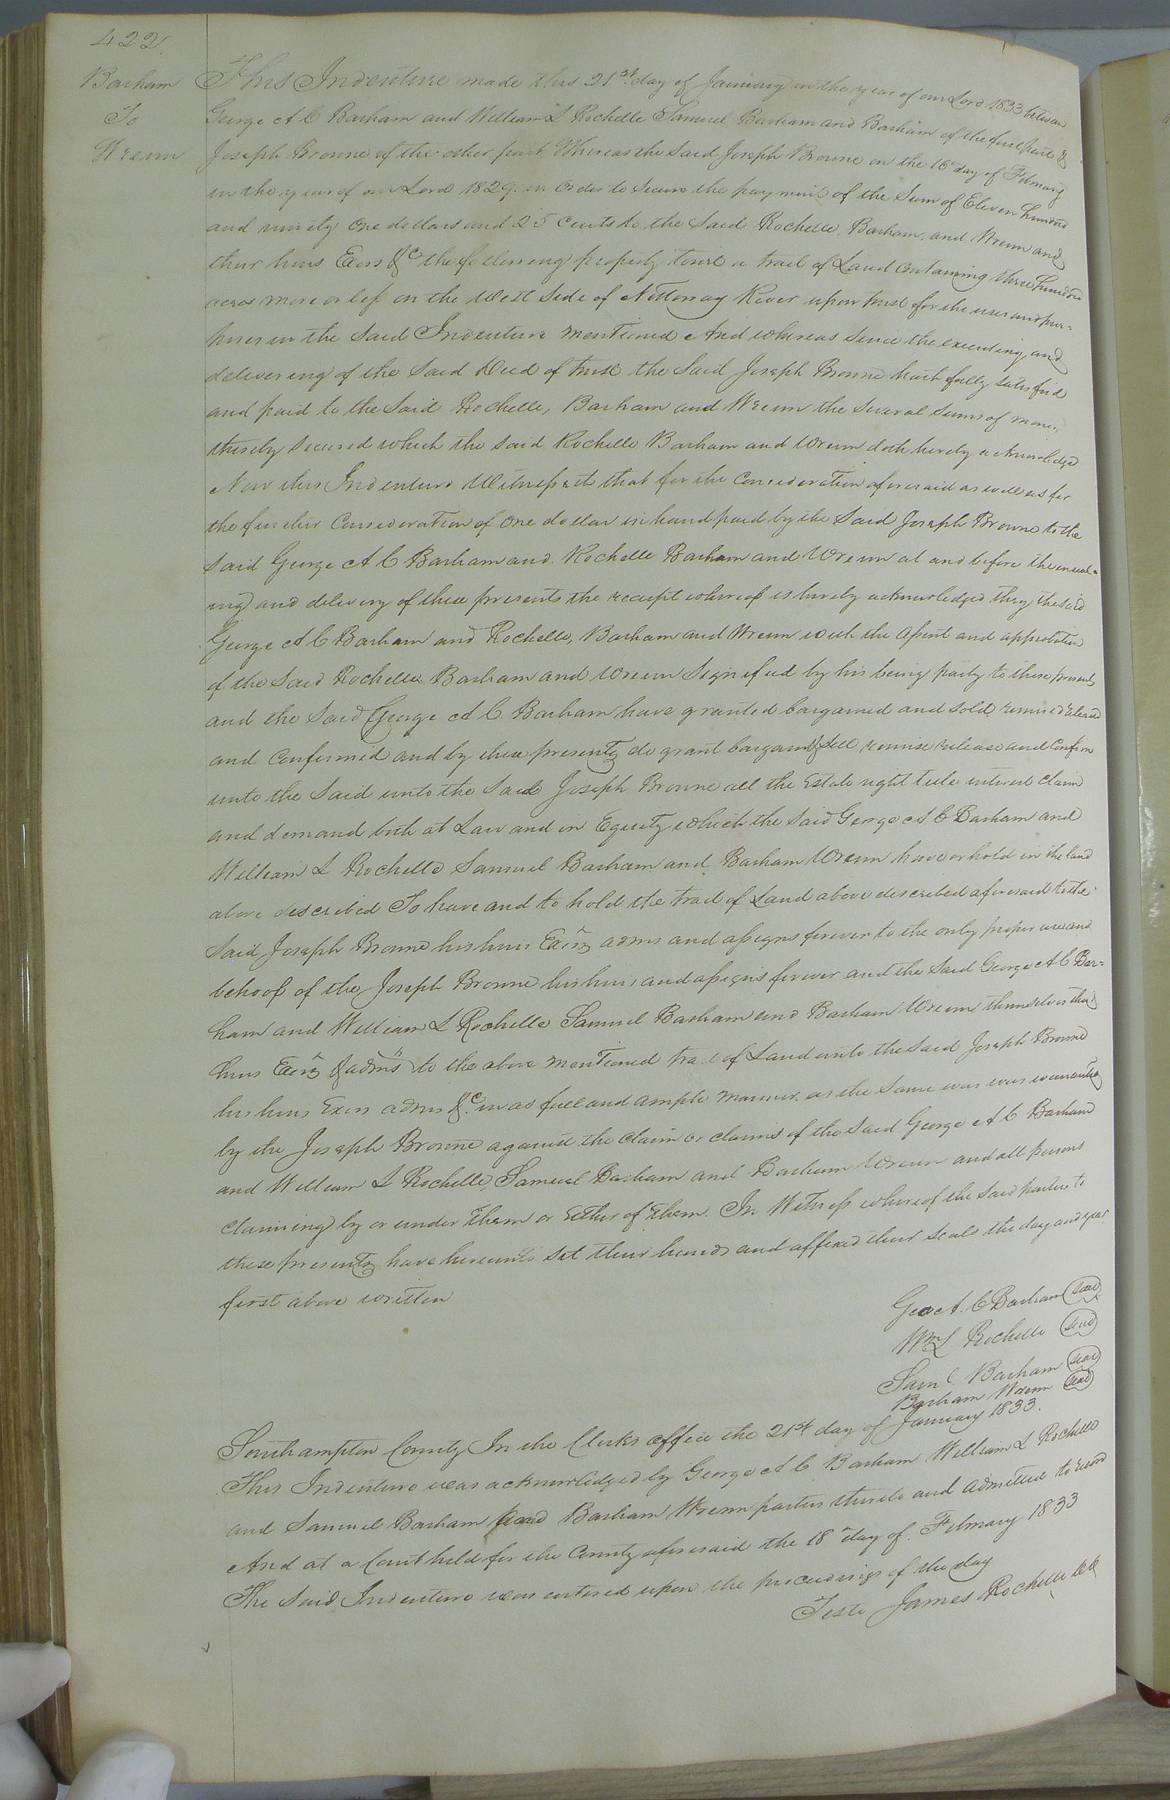 422
Barham
To
Wrenn
This Indenture made this 21st day of January in the year of our Lord 1833 between
George A C Barham and William L Rochelle Samuel Barham and Barham of the first part &
Joseph Browne of the other part Whereas the said Joseph Browne on the 16th day of February
in the year of our Lord 1829 in order to secure the payment of the Sum of Eleven hundred
and ninety one dollars and 25 Cents to the Said Rochelle, Barham, and Wrenn and
their heirs Exors &c the following property towit a tract of Land containing three hundred
acres more or less on the West Side of Nottoway River upon trust for the uses and pur=
poses in the Said Indenture mentioned And whereas Since the executing and
delivering of the Said Deed of trust the Said Joseph Browne hath fully satisfied
and paid to the Said Rochelle, Barham and Wrenn the Several Sums of money
thereby Secured which the said Rochelle Barham and Wrenn doth hereby acknowledge
Now this Indenture Witnesseth that for the Consideration aforesaid as well as for
the further Consideration of one dollar in hand paid by the Said Joseph Browne to the
Said George A C Barham and Rochelle Barham and Wrenn at and before the enseal=
ing and delivery of these presents the receipt whereof is hereby acknowledged they the said
George A C Barham and Rochelle, Barham and Wrenn with the assent and approbation
of the Said Rochelle Barham and Wrenn Signified by his being party to these presents
and the Said George A C Barham have granted bargained and Sold, remised released
and Confirmed and by these presents do grant bargain & Sell remise release and Confirm
unto the Said unto the Said Joseph Browne all the Estate right title interest claim
and demand both at Law and in Equity which the Said George A C Barham and
William L Rochelle Samuel Barham and Barham Wrenn have or hold in the land
above described To have and to hold the tract of Land above described aforesaid to the
Said Joseph Browne his heirs Exors adms and assigns forever to the only proper use and
behoof of the Joseph Browne his heirs and assigns forever and the Said George A C Bar=
ham and William L Rochelle Samuel Barham and Barham Wrenn themselves their
heirs Exors & adms to the above mentioned tract of Land unto the Said Joseph Browne
his heirs Exors adms &c in as full and ample manner as the Same was was warranted
by the Joseph Browne against the claim or claims of the Said George A C Barham
and William L Rochelle, Samuel Barham and Barham Wrenn and all persons
claiming by or under them or either of them. In Witness whereof the Said parties to
these presents have hereunto Set their hands and affixed their Seals the day and year
first above written
Geo A. C Barham seal
Wm L Rochelle seal
Saml Barham seal
Barham Wrenn seal
Southampton County In the Clerks office the 21st day of January 1833.
This Indenture was acknowledged by George A C Barham William L Rochelle
and Samuel Barham and Barham Wrenn parties thereto and admitted to record
And at a Court held for the County aforesaid the 18th day of February 1833
The Said Indenture was entered upon the proceedings of the day
Teste James Rochelle